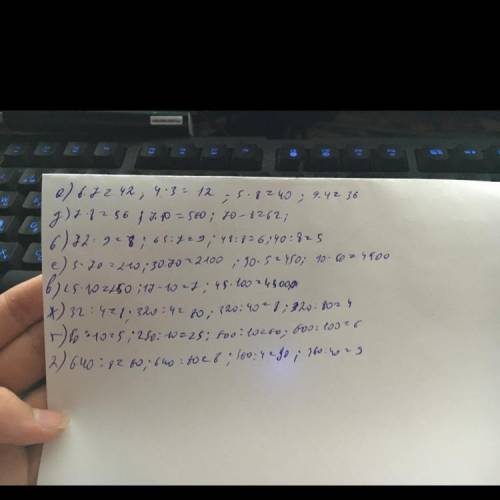 а) 6·7=42, 4·3=12; 5·8=40; 9·4=36
д) 7·8=56; 7·80=560; 70-8=62;
б) 72:9=8; 63:7=9; 48:8=6; 40:8=5
е) 3·70=210; 30·70=2100; 90·5=450; 90·50=4500
в) 25·10=250; 17-10=7; 45·100=4500
ж) 32:4=8; 320:4=80; 320:40=8; 320:80=4
г) 50:10=5; 250:10=25; 800:10=80; 600:100=6
640:8=80; 640:80=8; 360:4=90; 360:40=9